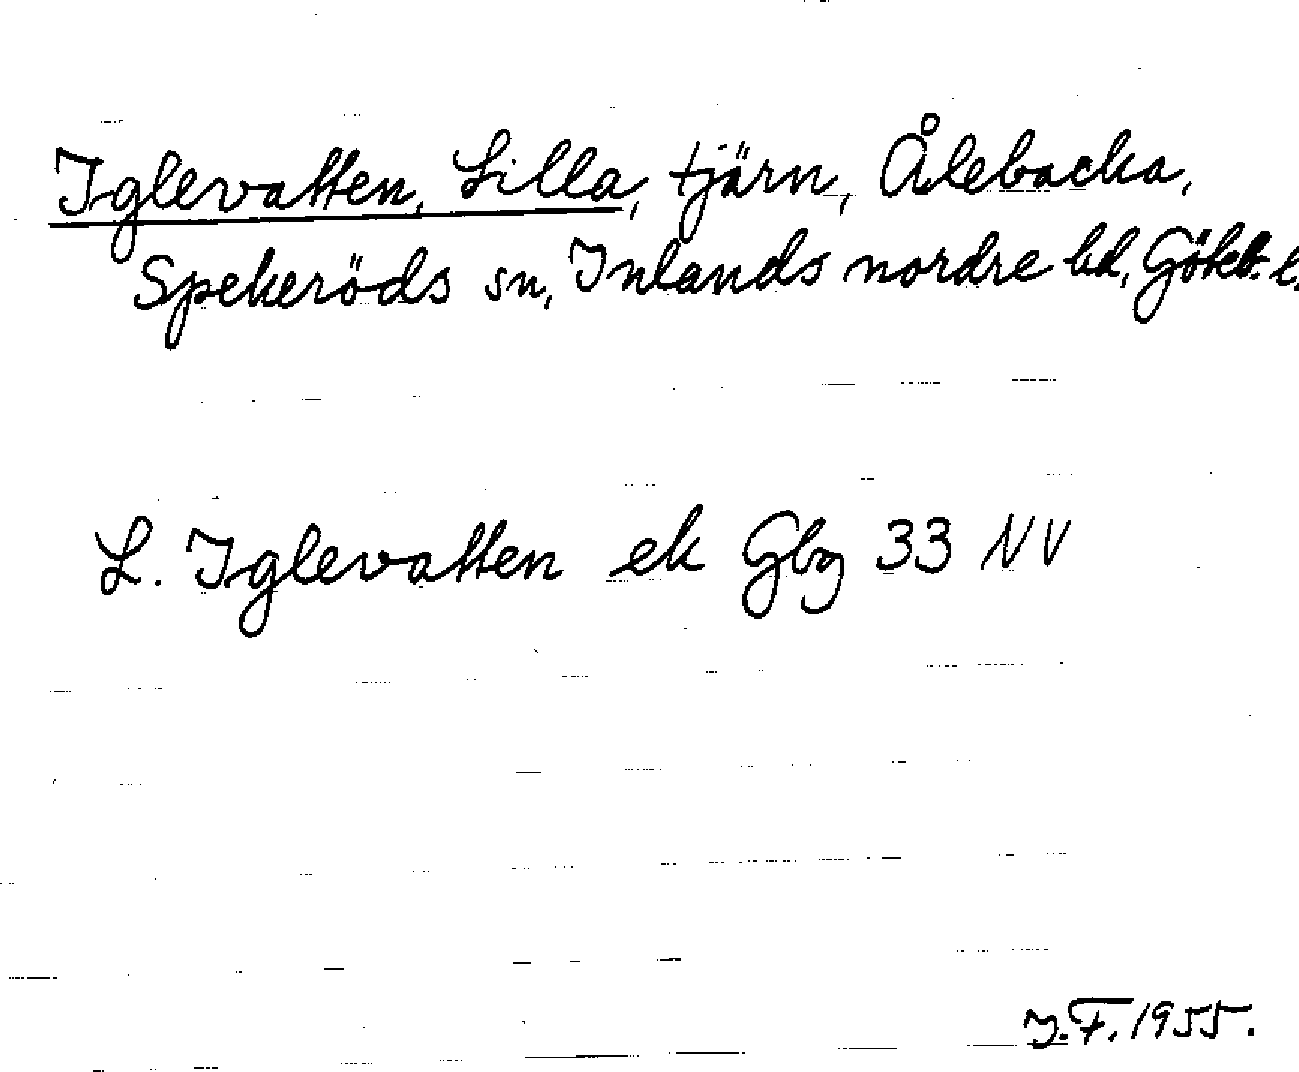 Iglevatten, Lilla, tjärn, Ålebacka,
Spekeröds sn, Inlands nordre hd, Göteb. l.
L. Iglevatten ek Gbg 33 NV
I.F. 1955.